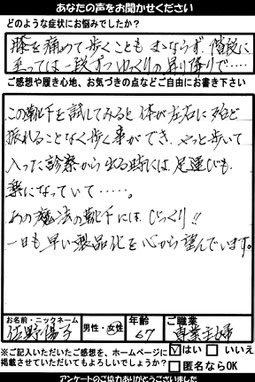 あなたの声をお聞かせください
どのような症状にお悩みでしたか?
膝を痛めて歩くこともままならず、階段に
至っては一段ずつゆっくりの昇り降りで…
ご感想や履き心地、お気づきの点などご自由にお書き下さい
この靴下を試してみると体が左右に殆ど
振れることなく歩く事ができ、やっと歩いて
入った診察から出る時には足運びも
楽になっていて……。
あの魔法の靴下には、びっくり!!
一日も早い製品化を心から望んでいます。
お名前・ニックネーム
佐野陽子
男性・女性
年齢
67
ご職業
専業主婦
※ご記入いただいたご感想を、ホームページに
掲載させていただいてもよろしいでしょうか?
はい
いいえ
匿名ならOK
アンケートのご協力ありがとうございました